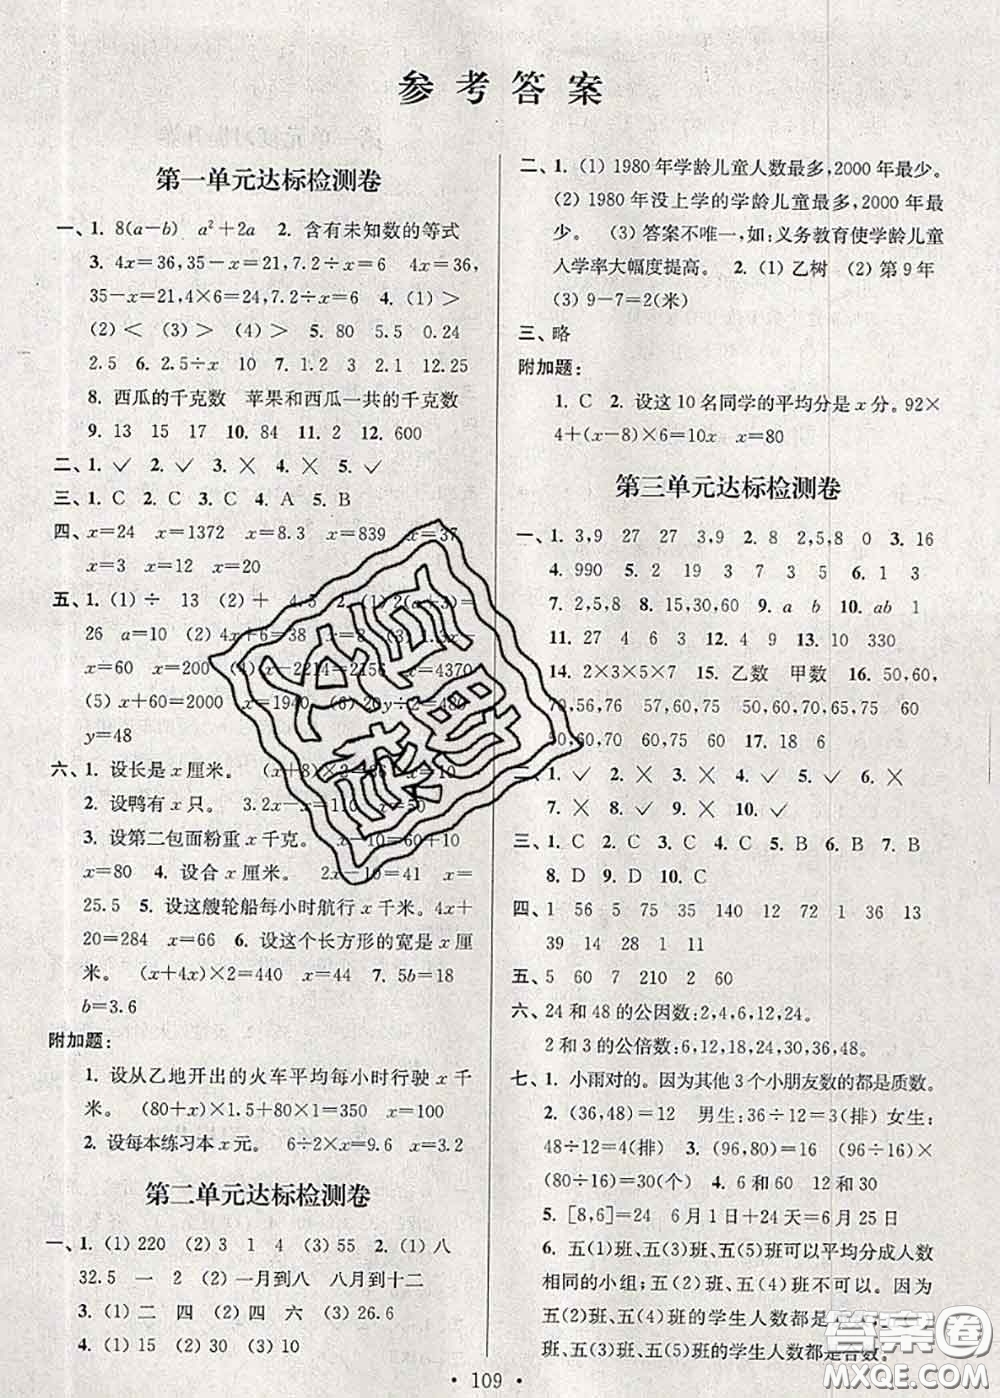 参考答案
第一单元达标检测卷
一、1. 8(a-b) a²+2a 2. 含有未知数的等式
3. 4x=36,35-x=21,7.2÷x=6 4x=36,
35-x=21,4×6=24,7.2÷x=6 4. (1)>
(2)< (3)> (4)> 5. 80 5.5 0.24
2.5 6. 2.5÷x 10 7. 1.2 3 2.1 12.25
8. 西瓜的千克数 苹果和西瓜一共的千克数
9. 13 15 17 10. 84 11. 2 12. 600
二、1. ✓ 2. ✓ 3. ✕ 4. ✕ 5. ✓
三、1. C 2. C 3. C 4. A 5. B
四、x=24 x=1372 x=283 x=839 x=37
x=3 x=12 x=20
五、1. (1)÷ 13 (2)+ 4.5 2. (1)2(a+3)=
26 a=10 (2) 4x+6=38 x=8 (3)
x=60 x=200 (4) x-2214=2156 x=4370
(5) x+60=2000 x=1940 (6) 20y÷2=480
y=48
六、1. 设长是 x 厘米。 (x+8)×3 x=10
2. 设鸭有 x 只。 3.2x-x=110 x=50
3. 设第二包面粉重 x 千克。 x-10=60+10
x=80 4. 设合 x 厘米。 2x-10=41 x=
25.5 5. 设这艘轮船每小时航行 x 千米。4x+
20=284 x=66 6. 设这个长方形的宽是 x 厘
米。 (x+4x)×2=440 x=44 7. 5b=18
b=3.6
附加题：
1. 设从乙地开出的火车平均每小时行驶 x 千
米。 (80+x)×1.5+80=350 x=100
2. 设每本练习本 x 元。 6÷2×x=9.6 x=3.2
第二单元达标检测卷
一、1. (1) 220 (2) 3 1 4 (3) 55 2. (1) 八
32.5 一 2 (2) 一月到八 八月到十二
3. (1) 二 四 (2) 四 六 (3) 26.6
4. (1) 15 (2) 30 (3) 10
二、1. (1) 1980 年学龄儿童人数最多,2000 年最少。
(2) 1980 年没上学的学龄儿童最多,2000 年最
少。 (3) 答案不唯一,如:义务教育使学龄儿童
入学率大幅度提高。 2. (1) 乙树 (2) 第 9 年
(3) 9-7=2(米)
三、略
附加题：
1. C 2. 设这 10 名同学的平均分是 x 分。92×
4+(x-8)×6=10x x=80
第三单元达标检测卷
一、1. 3,9 27 27 3,9 2. 8 2,5,8 0 3. 16
4. 990 5. 2 19 3 7 3 5 6. 1 3
7. 2,5,8 8. 15,30,60 9. a b 10. ab 1
11. 27 4 6 3 12. 4 9 13. 10 330
14. 2×3×5×7 15. 乙数 甲数 16. 50,60,
70,56,76 57,60,75 50,60,70,65,75 60
50,60,70 75,60 60 17. 18 6
二、1. ✓ 2. ✕ 3. ✕ 4. ✓ 5. ✓ 6. ✕
7. ✕ 8. ✓ 9. ✕ 10. ✓
三、1. C 2. C 3. B 4. C 5. B 6. B 7. A
8. D 9. D 10. C
四、1 56 5 135 140 72 1 36 13
39 14 28 1 11
五、5 60 7 210 2 60
六、24 和 48 的公因数:2,4,6,12,24。
2 和 3 的公倍数:6,12,18,24,30,36,48。
七、1. 小雨对的。因为其他 3 个小朋友数的都是质数。
2. (36,48)=12 男生:36÷12=3(排) 女生:
48÷12=4(排) 3. (96,80)=16 (96+80)
÷16=11(块) 4. 6 和 60 12 和 30
5. [8,6]=24 6 月 1 日+24 天=6 月 25 日
6. 五(1)班、五(3)班、五(5)班可以平均分成人数
相同的小组;五(2)班、五(4)班不可以。因为
五(2)班、五(4)班的学生人数都是
五(5)班的学生人数都是合数。
· 109 ·
答案圈
MXQE.COM